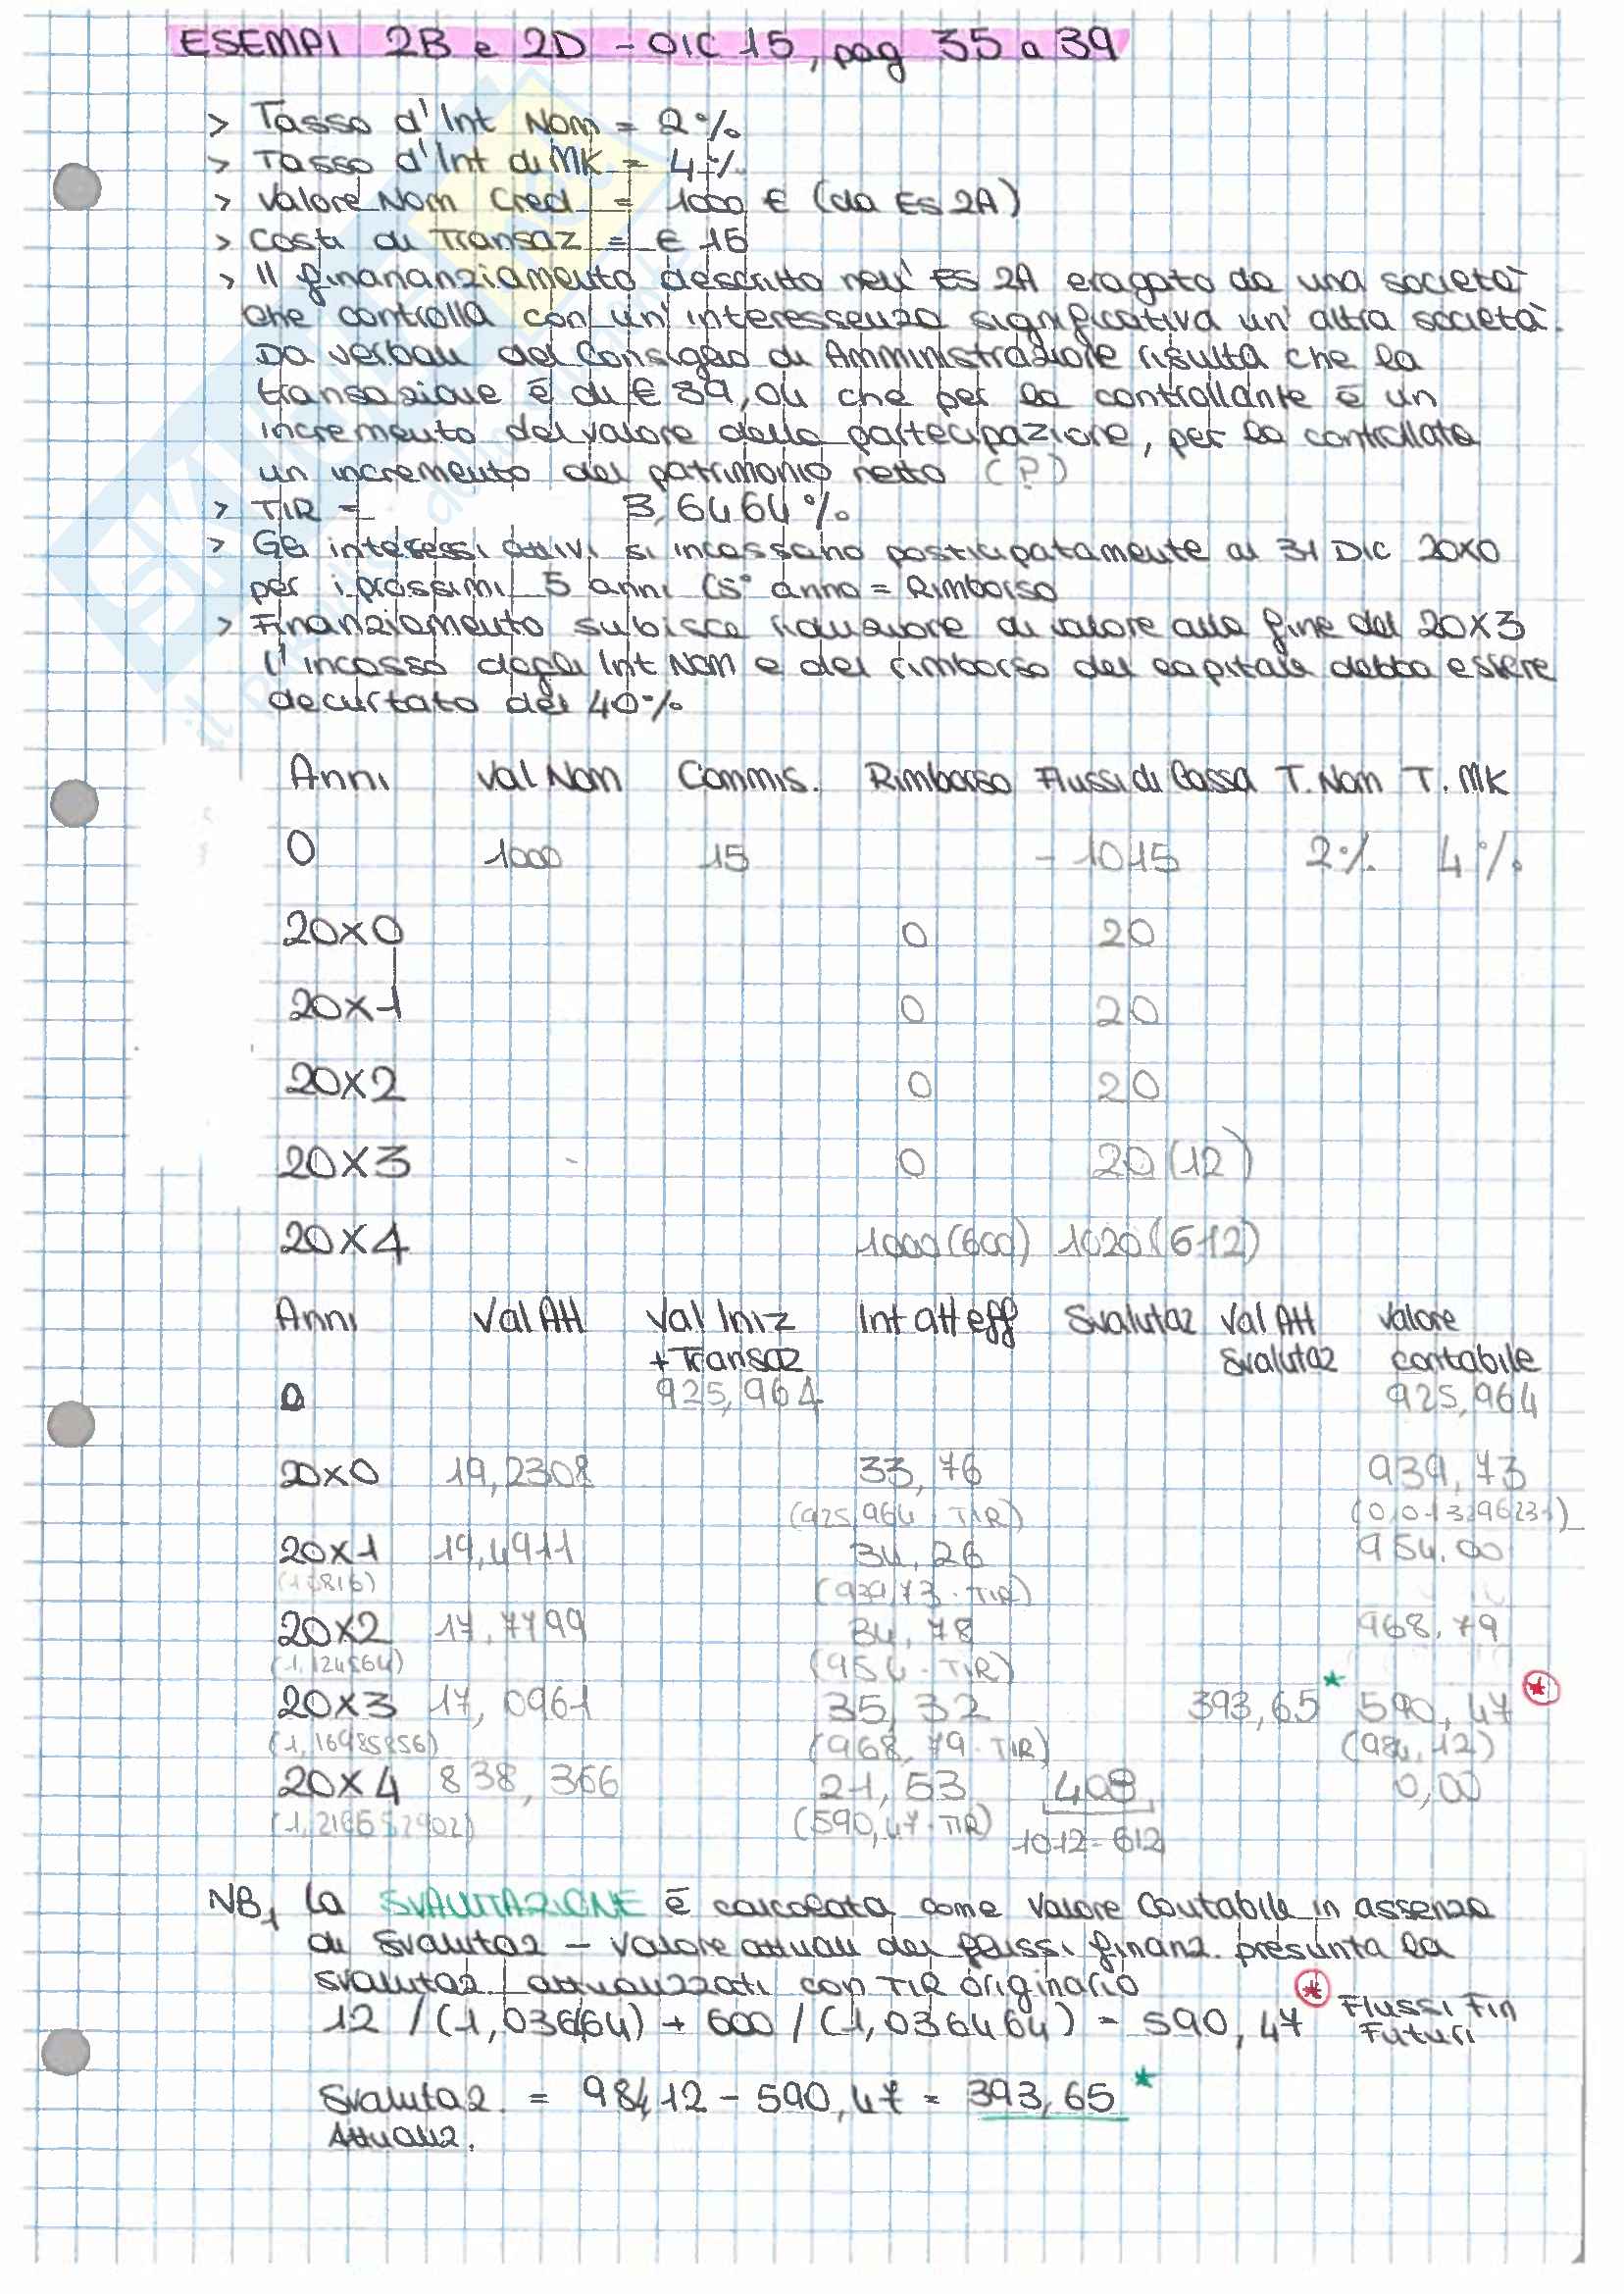 ESEMPI 2B e 2D - OIC 15, pag 35 a 39
> Tasso d'Int Nom = 2%
> Tasso d'Int di MK = 4%
> Valore Nom Cred = 1000 € (da Es 2A)
> Costi di Transaz = € 15
> Il finananziamento descritto nell' ES 2A erogato da una società
che controlla con un' interessenza significativa un' altra società.
Da verbali del Consiglio di Amministrazione risulta che la
transazione è di € 89,04 che per la controllante è un
incremento del valore della partecipazione, per la controllata
un incremento del patrimonio netto (?)
> TIR = 3,6464%
> Gli interessi attivi si incassano posticipatamente al 31 Dic 20x0
per i prossimi 5 anni (5° anno = Rimborso
> Finanziamento subisce riduzione di valore alla fine del 20x3
l'incasso degli Int Nom e del rimborso del capitale debba essere
decurtato del 40%
Anni Val Nom Commis. Rimborso Flussi di Cassa T. Nom T. MK
0 1000 15 - 1015 2% 4%
20x0 0 20
20x1 0 20
20x2 0 20
20x3 0 20 (12)
20x4 1000 (600) 1020 (612)
Anni Val Att Val Iniz Int att eff Svalutaz Val Att Valore
+ Transaz Svalutaz contabile
0 925,964 925,964
20x0 19,2308 33,76 939,73
(925,964 · TIR)
20x1 19,4911 34,26 954,00
(1,0816) (939,73 · TIR)
20x2 17,7799 34,78 968,79
(1,124864) (954 · TIR)
20x3 17,0961 35,32 393,65* 590,47 *
(1,16985856) (968,79 · TIR) (984,12)
20x4 838,366 21,53 408 0,00
(1,2166532902) (590,47 · TIR) 1012-612
NB, La SVALUTAZIONE è calcolata come Valore Contabile in assenza
di Svalutaz - valore attuale dei flussi finanz. presunta la
svalutaz attualizzati con TIR originario
12 / (1,036464) + 600 / (1,036464) = 590,47 * Flussi Fin
Futuri
Svalutaz. = 984,12 - 590,47 = 393,65 *
Attualiz.